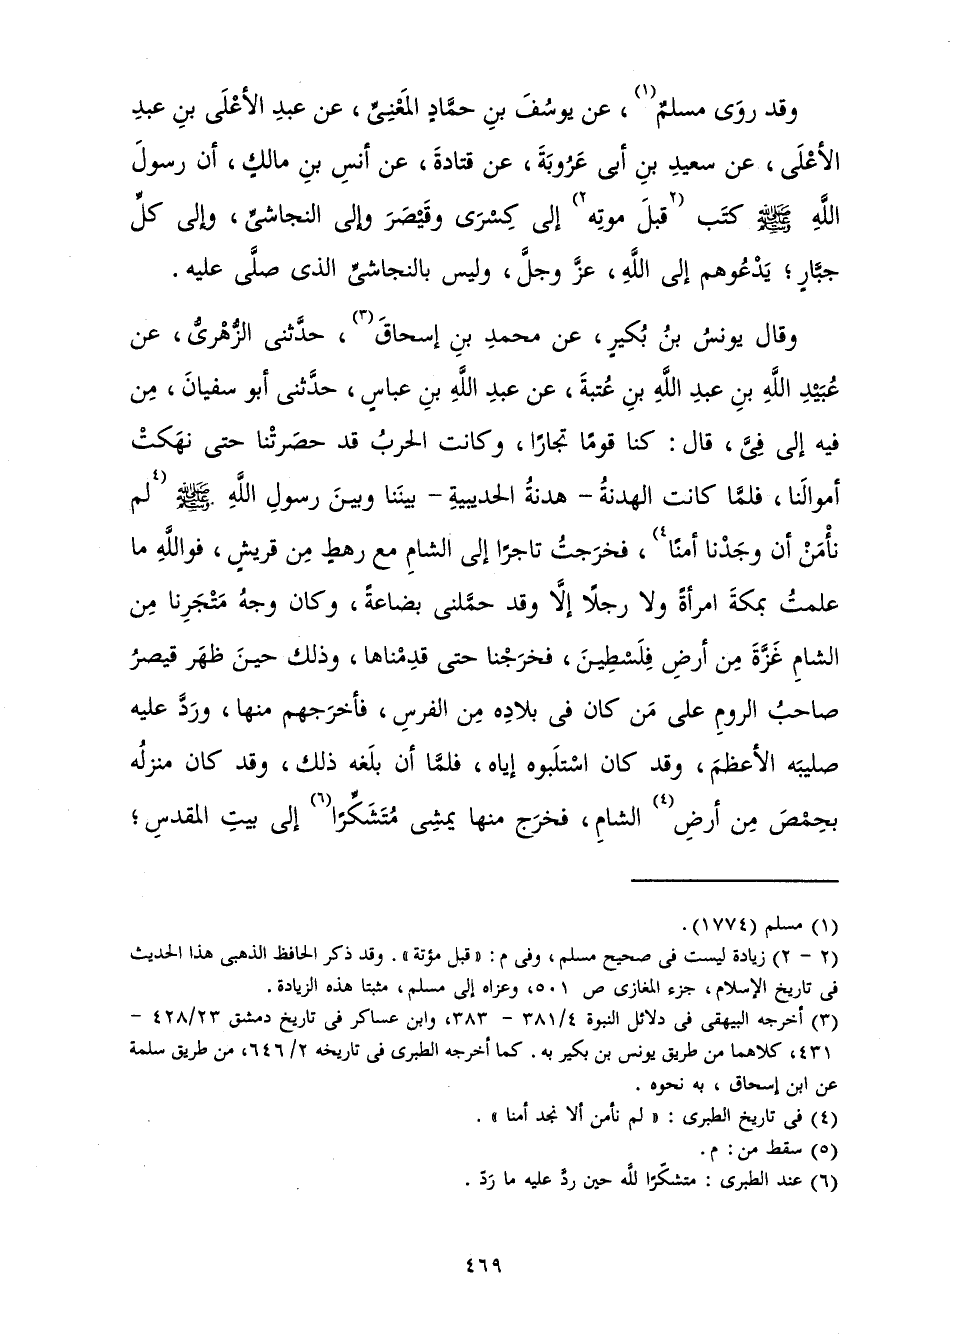 وقد روَى مسلمٌ(١)، عن يوسُفَ بنِ حمَّادٍ المَعْنِيِّ، عن عبدِ الأعْلَى بنِ عبدِ
الأعْلَى، عن سعيدِ بنِ أبى عَرُوبَةَ، عن قتادةَ، عن أنسِ بنِ مالكٍ، أن رسولَ
اللَّهِ ﷺ كتَب (٢قبلَ موتِه٢) إلى كِسْرَى وقَيْصَرَ وإلى النجاشىِّ، وإلى كلِّ
جبَّارٍ؛ يَدْعُوهم إلى اللَّهِ، عزَّ وجلَّ، وليس بالنجاشىِّ الذى صلَّى عليه.
وقال يونسُ بنُ بُكيرٍ، عن محمدِ بنِ إسحاقَ(٣)، حدَّثنى الزُّهْرىُّ، عن
عُبَيْدِ اللَّهِ بنِ عبدِ اللَّهِ بنِ عُتبةَ، عن عبدِ اللَّهِ بنِ عباسٍ، حدَّثنى أبو سفيانَ، مِن
فيه إلى فِىَّ، قال: كنا قومًا تجارًا، وكانت الحربُ قد حصَرتْنا حتى نهَكتْ
أموالَنا، فلمَّا كانت الهدنةُ - هدنةُ الحديبيةِ - بينَنا وبينَ رسولِ اللَّهِ ﷺ (٤لم
نأْمَنْ أن وجَدْنا أمنًا٤)، فخرَجتُ تاجرًا إلى الشامِ مع رهطٍ مِن قريشٍ، فواللَّهِ ما
علمتُ بمكةَ امرأةً ولا رجلًا إلَّا وقد حمَّلنى بضاعةً، وكان وجهُ مَتْجَرِنا مِن
الشامِ غَزَّةَ مِن أرضِ فِلَسْطِينَ، فخرَجْنا حتى قدِمْناها، وذلك حينَ ظهَر قيصرُ
صاحبُ الرومِ على مَن كان فى بلادِه مِن الفرسِ، فأخرَجهم منها، ورَدَّ عليه
صليبَه الأعظمَ، وقد كان اسْتلَبوه إياه، فلمَّا أن بلَغه ذلك، وقد كان منزلُه
بحِمْصَ مِن أرضِ(٤) الشامِ، فخرَج منها يمشِى مُتَشَكِّرًا(٦) إلى بيتِ المقدسِ؛
(١) مسلم (١٧٧٤).
(٢ - ٢) زيادة ليست فى صحيح مسلم، وفى م: «قبل مؤتة». وقد ذكر الحافظ الذهبى هذا الحديث
فى تاريخ الإسلام، جزء المغازى ص ٥٠١، وعزاه إلى مسلم، مثبتا هذه الزيادة.
(٣) أخرجه البيهقى فى دلائل النبوة ٣٨١/٤ - ٣٨٣، وابن عساكر فى تاريخ دمشق ٤٢٨/٢٣ -
٤٣١، كلاهما من طريق يونس بن بكير به. كما أخرجه الطبرى فى تاريخه ٦٤٦/٢، من طريق سلمة
عن ابن إسحاق، به نحوه.
(٤) فى تاريخ الطبرى: «لم نأمن ألا نجد أمنا».
(٥) سقط من: م.
(٦) عند الطبرى: متشكّرًا للَّه حين ردَّ عليه ما رَدّ.
٤٦٩